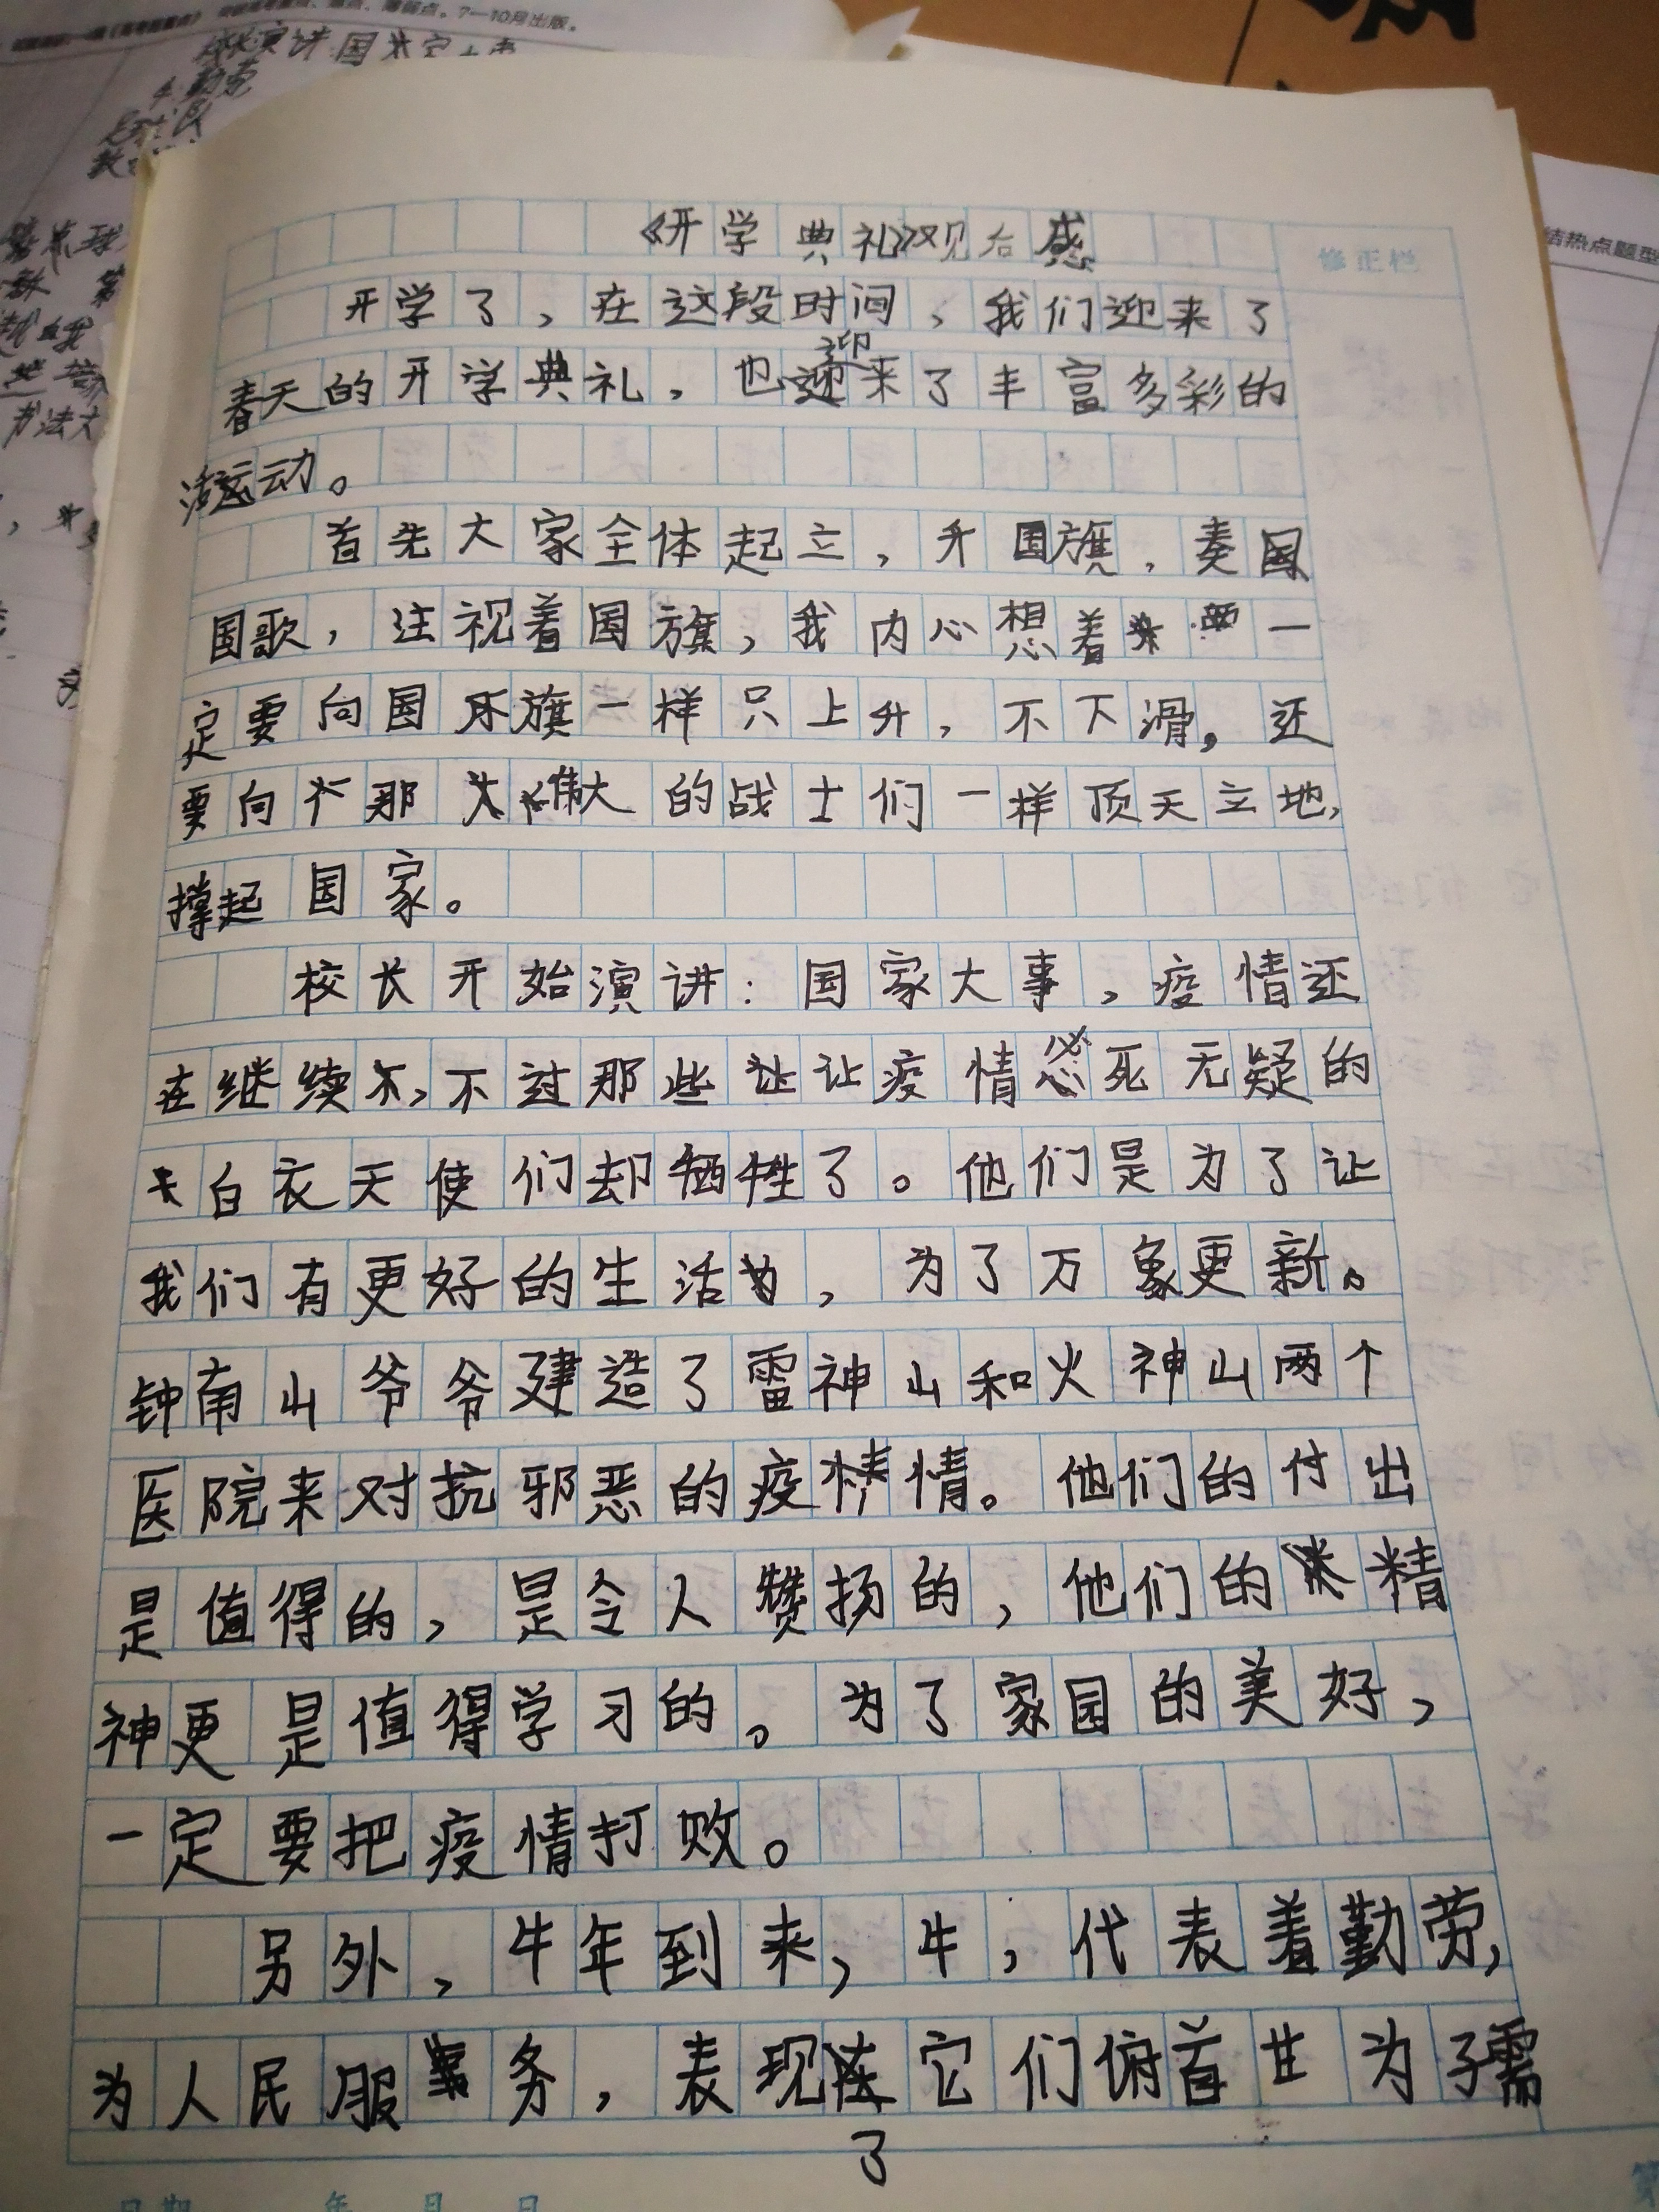 7—10月出版。
《开学典礼》观后感
修正栏
结热点题型
开学了，在这段时间，我们迎来了
春天的开学典礼，也迎来了丰富多彩的
活动。
首先大家全体起立，升国旗，奏国
国歌，注视着国旗，我内心想着一
定要向国旗一样只上升，不下滑，还
要向那伟大的战士们一样顶天立地，
撑起国家。
校长开始演讲：国家大事，疫情还
在继续，不过那些让疫情必死无疑的
白衣天使们却牺牲了。他们是为了让
我们有更好的生活，为了万象更新。
钟南山爷爷建造了雷神山和火神山两个
医院来对抗邪恶的疫情。他们的付出
是值得的，是令人赞扬的，他们的精
神更是值得学习的。为了家园的美好，
一定要把疫情打败。
另外，牛年到来，牛，代表着勤劳，
为人民服务，表现了它们俯首甘为孺
日期 年 月 日